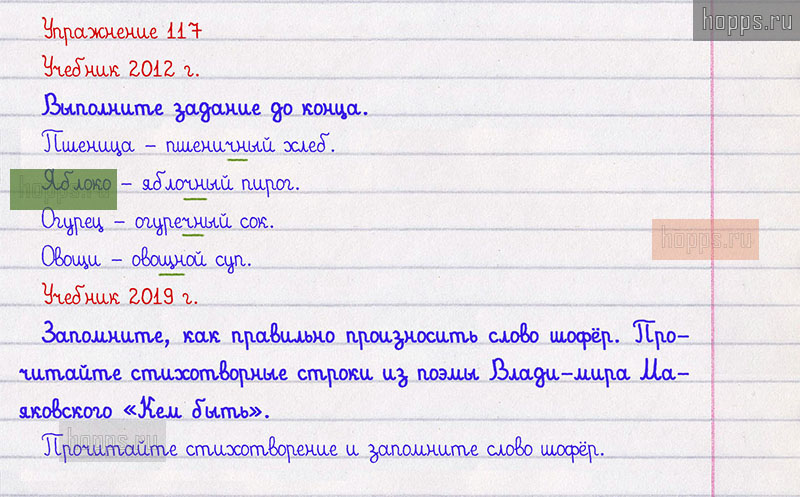 hopps.ru
Упражнение 117
Учебник 2012 г.
Выполните задание до конца.
Пшеница – пшеничный хлеб.
Яблоко – яблочный пирог.
hopps.ru
Огурец – огуречный сок.
hopps.ru
Овощи – овощной суп.
Учебник 2019 г.
Запомните, как правильно произносить слово шофёр. Про-
читайте стихотворные строки из поэмы Влади-мира Ма-
яковского «Кем быть».
hopps.ru
Прочитайте стихотворение и запомните слово шофёр.